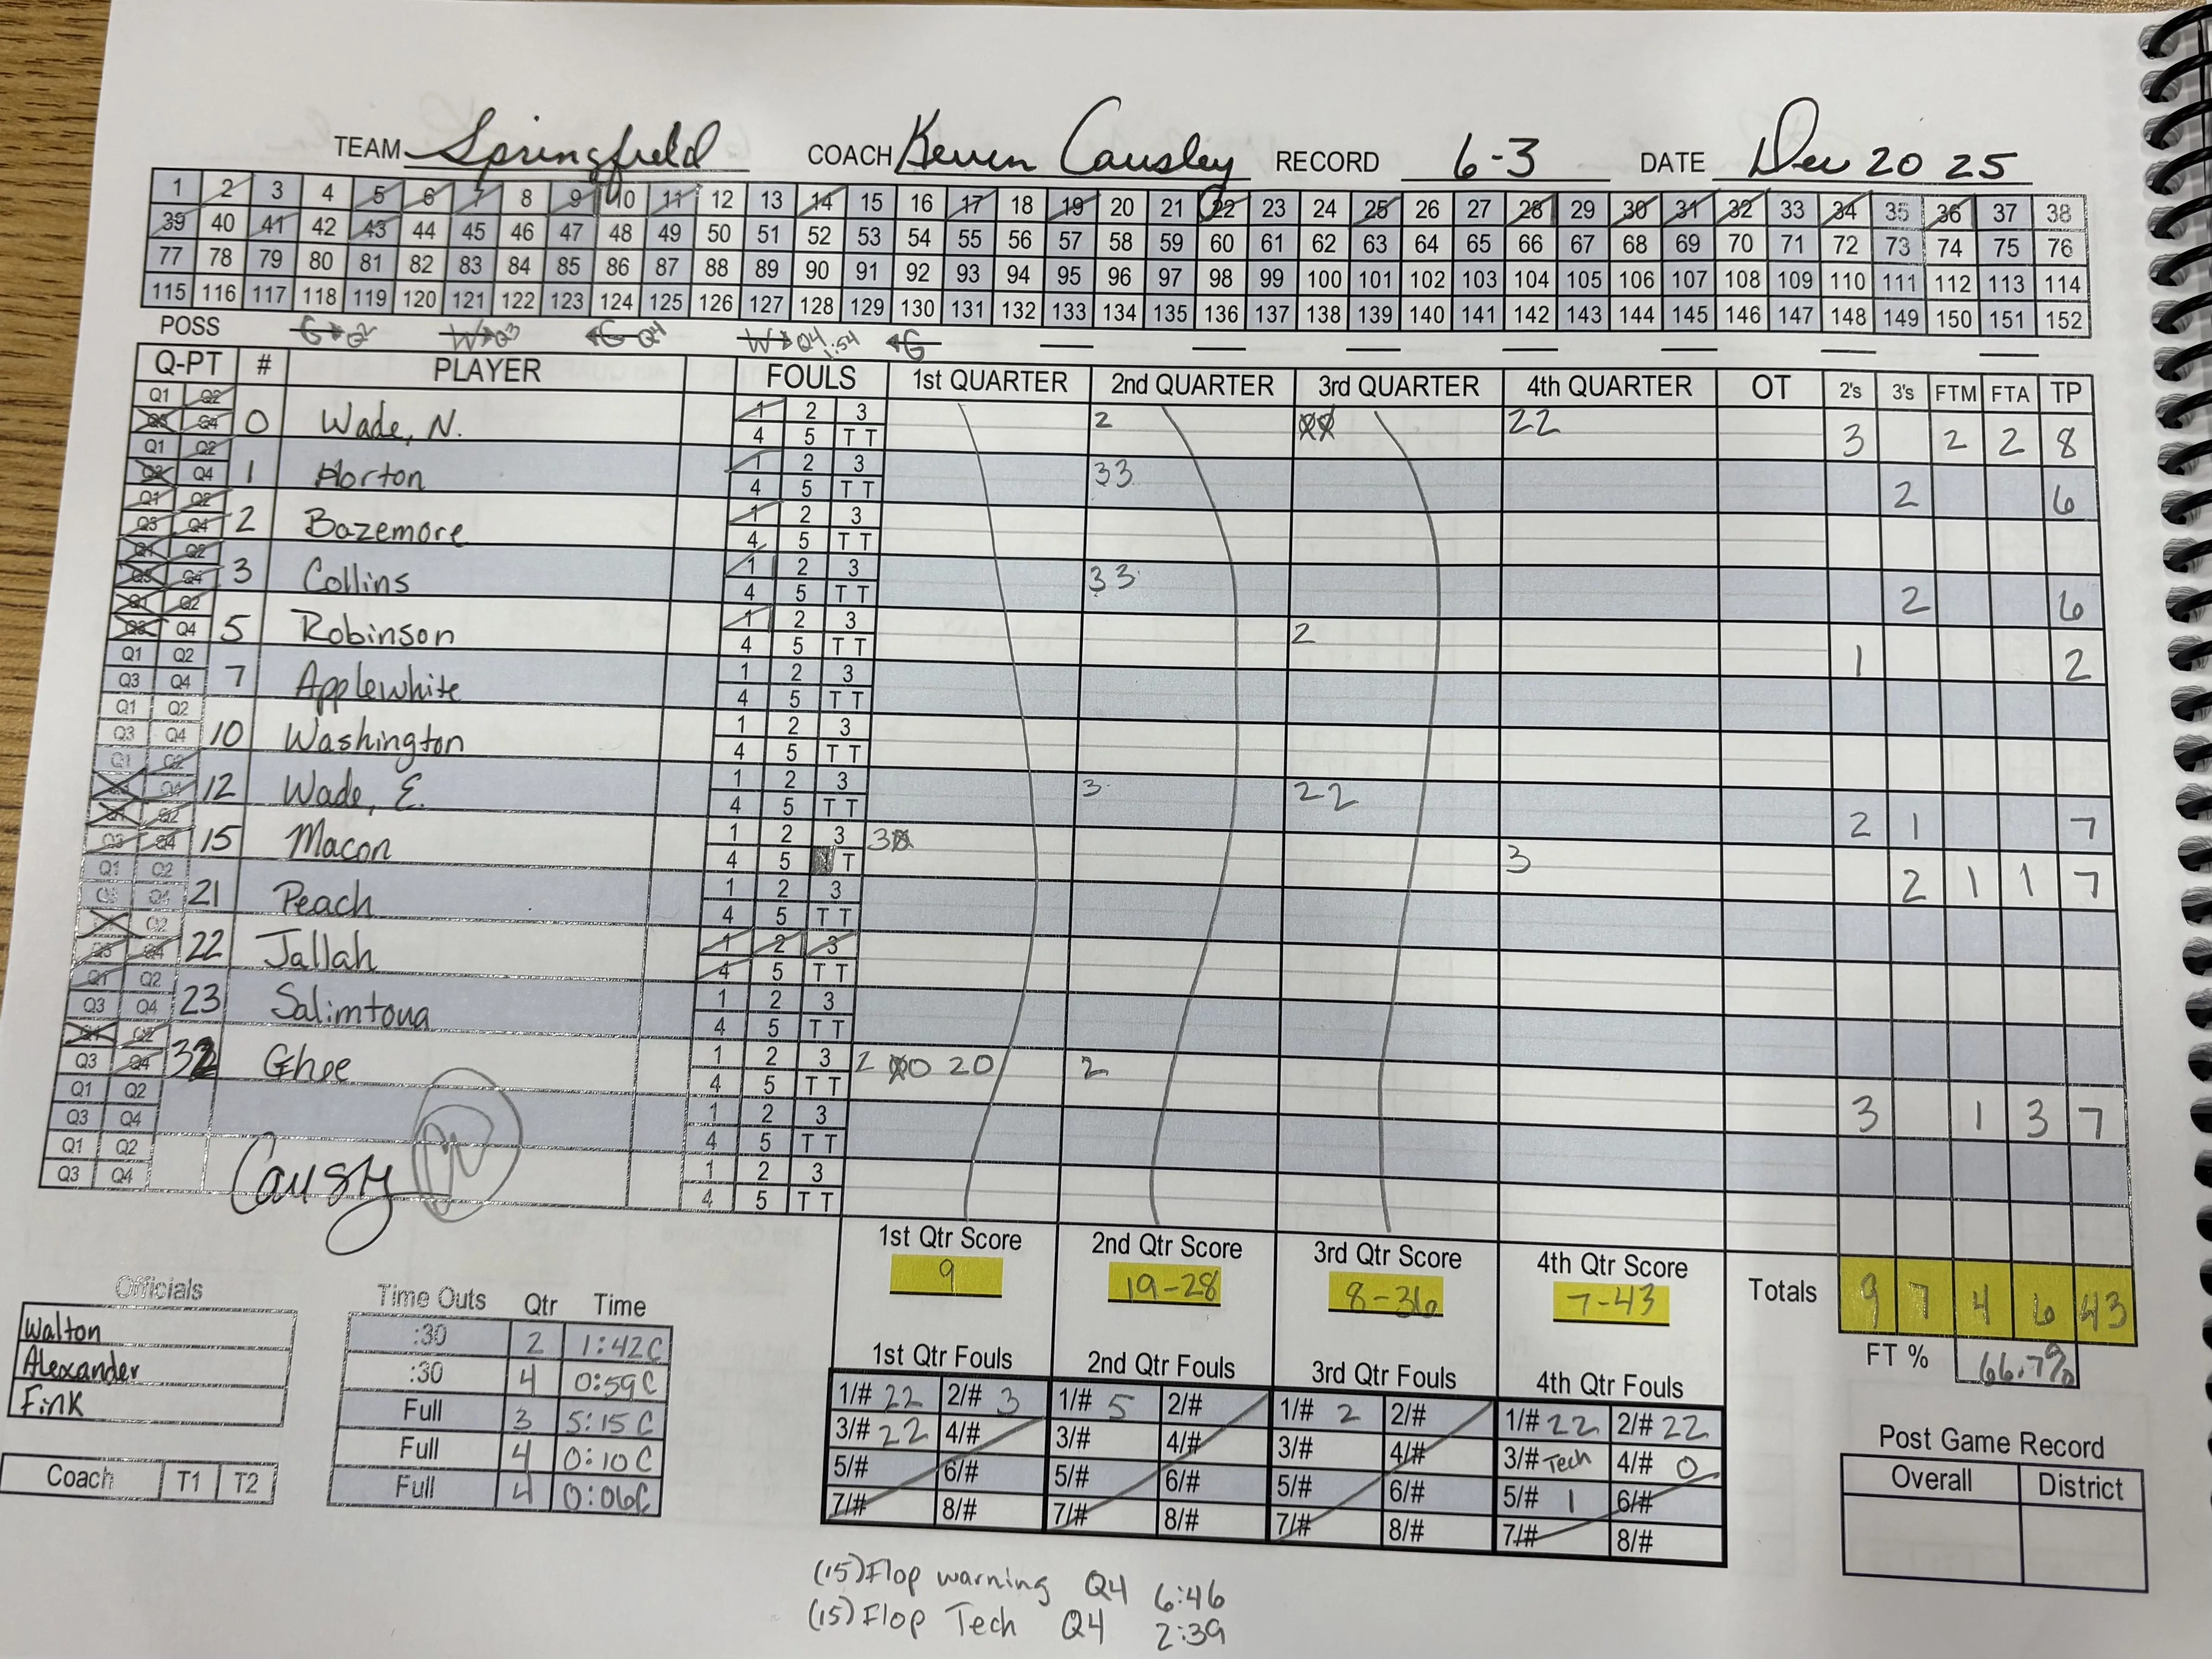 TEAM Springfield COACH Keven Causley RECORD 6-3 DATE Dec 20 25
1 2 3 4 5 6 7 8 9 10 11 12 13 14 15 16 17 18 19 20 21 22 23 24 25 26 27 28 29 30 31 32 33 34 35 36 37 38
39 40 41 42 43 44 45 46 47 48 49 50 51 52 53 54 55 56 57 58 59 60 61 62 63 64 65 66 67 68 69 70 71 72 73 74 75 76
77 78 79 80 81 82 83 84 85 86 87 88 89 90 91 92 93 94 95 96 97 98 99 100 101 102 103 104 105 106 107 108 109 110 111 112 113 114
115 116 117 118 119 120 121 122 123 124 125 126 127 128 129 130 131 132 133 134 135 136 137 138 139 140 141 142 143 144 145 146 147 148 149 150 151 152
POSS G Q2 W Q3 G Q4 W Q4 1:54 G
Q-PT # PLAYER FOULS 1st QUARTER 2nd QUARTER 3rd QUARTER 4th QUARTER OT 2's 3's FTM FTA TP
Q1 Q2 1 2 3
Q3 Q4 0 Wade, N. 4 5 T T 2 00 22 3 2 2 8
Q1 Q2 1 2 3
Q3 Q4 1 Horton 4 5 T T 33 2 6
Q1 Q2 1 2 3
Q3 Q4 2 Bazemore 4 5 T T
Q1 Q2 1 2 3
Q3 Q4 3 Collins 4 5 T T 33 2 6
Q1 Q2 1 2 3
Q3 Q4 5 Robinson 4 5 T T 2 1 2
Q1 Q2 1 2 3
Q3 Q4 7 Applewhite 4 5 T T
Q1 Q2 1 2 3
Q3 Q4 10 Washington 4 5 T T
Q1 Q2 1 2 3
Q3 Q4 12 Wade, E. 4 5 T T 3 22 2 1 7
Q1 Q2 1 2 3
Q3 Q4 15 Macon 4 5 T T 30 3 2 1 1 7
Q1 Q2 1 2 3
Q3 Q4 21 Peach 4 5 T T
Q1 Q2 1 2 3
Q3 Q4 22 Jallah 4 5 T T
Q1 Q2 1 2 3
Q3 Q4 23 Salimtoua 4 5 T T
Q1 Q2 1 2 3
Q3 Q4 32 Ghee 4 5 T T 2 00 20 2 3 1 3 7
Q1 Q2 1 2 3
Q3 Q4 4 5 T T
Q1 Q2 1 2 3
Q3 Q4 4 5 T T
Causy
1st Qtr Score 2nd Qtr Score 3rd Qtr Score 4th Qtr Score
9 19-28 8-36 7-43 Totals 9 7 4 6 43
FT % 66.7%
Officials
Walton
Alexander
Fink
Coach T1 T2
Time Outs Qtr Time
:30 2 1:42C
:30 4 0:59C
Full 3 5:15C
Full 4 0:10C
Full 4 0:06C
1st Qtr Fouls 2nd Qtr Fouls 3rd Qtr Fouls 4th Qtr Fouls
1/# 22 2/# 3 1/# 5 2/# 1/# 2 2/# 1/# 22 2/# 22
3/# 22 4/# 3/# 4/# 3/# 4/# 3/# Tech 4/# 0
5/# 6/# 5/# 6/# 5/# 6/# 5/# 1 6/#
7/# 8/# 7/# 8/# 7/# 8/# 7/# 8/#
Post Game Record
Overall District
(15) Flop warning Q4 6:46
(15) Flop Tech Q4 2:39